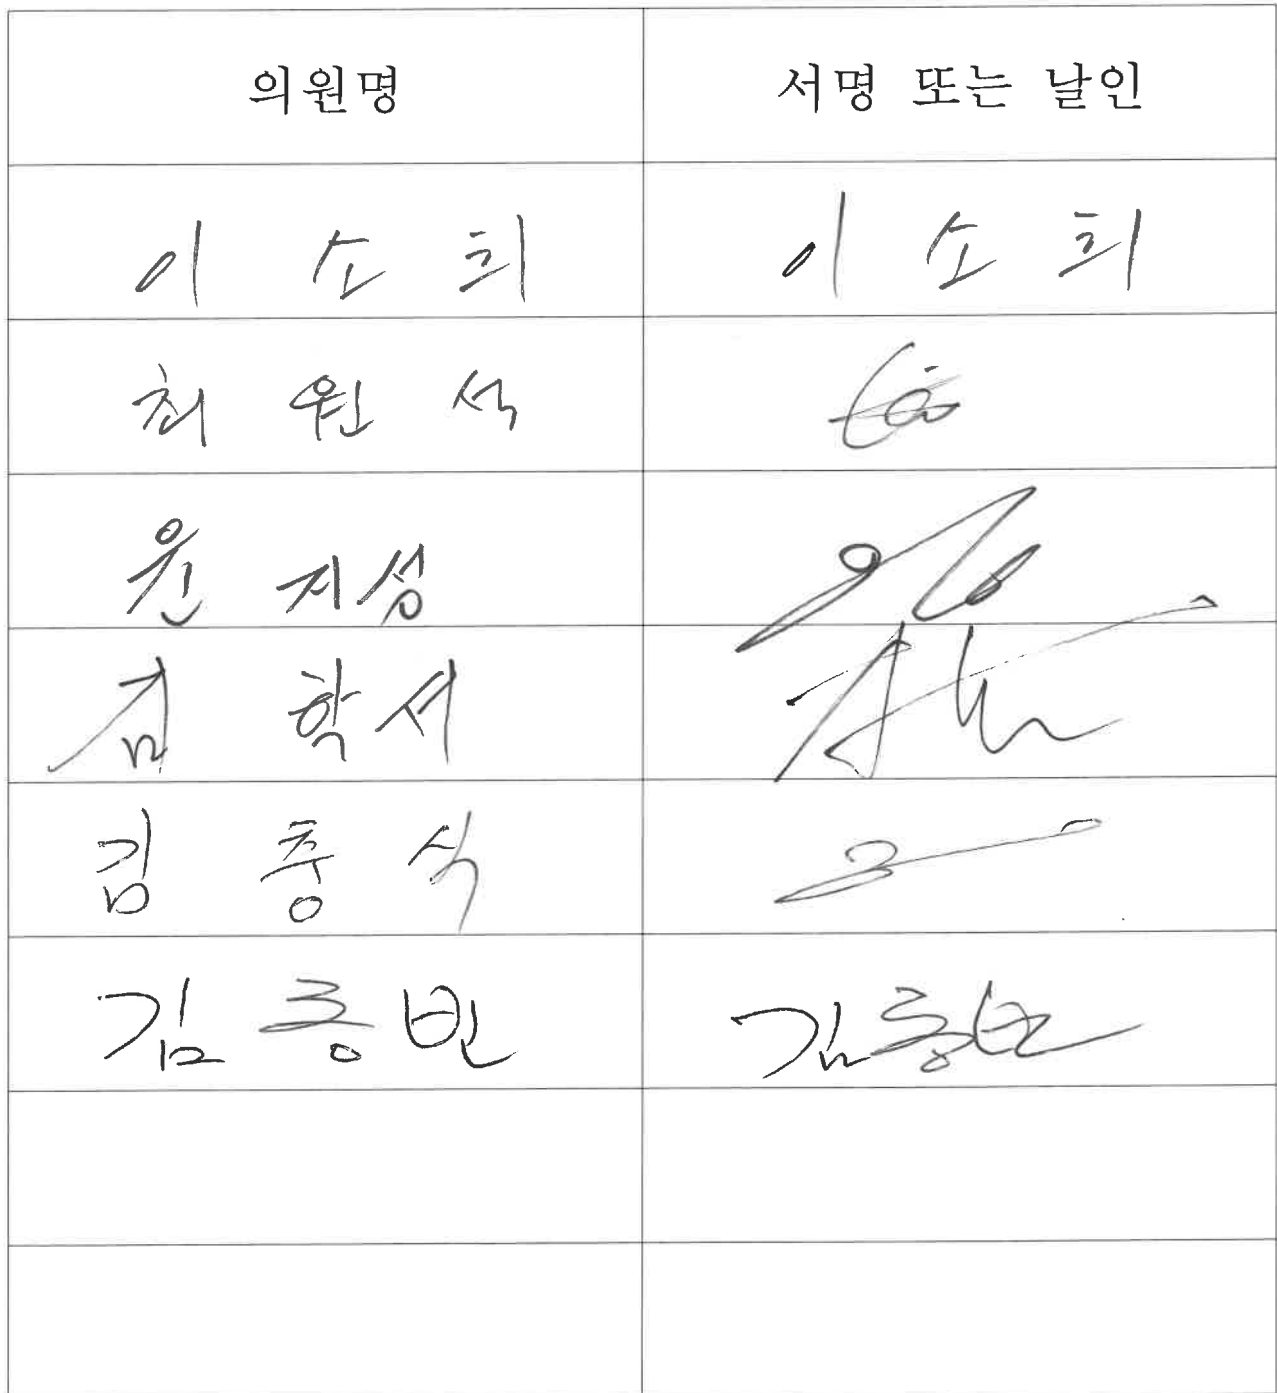 의원명 서명 또는 날인
이 소 희 이 소 희
최 원 석
윤 지성
김 학서
김 충 식
김 동 빈 김동빈